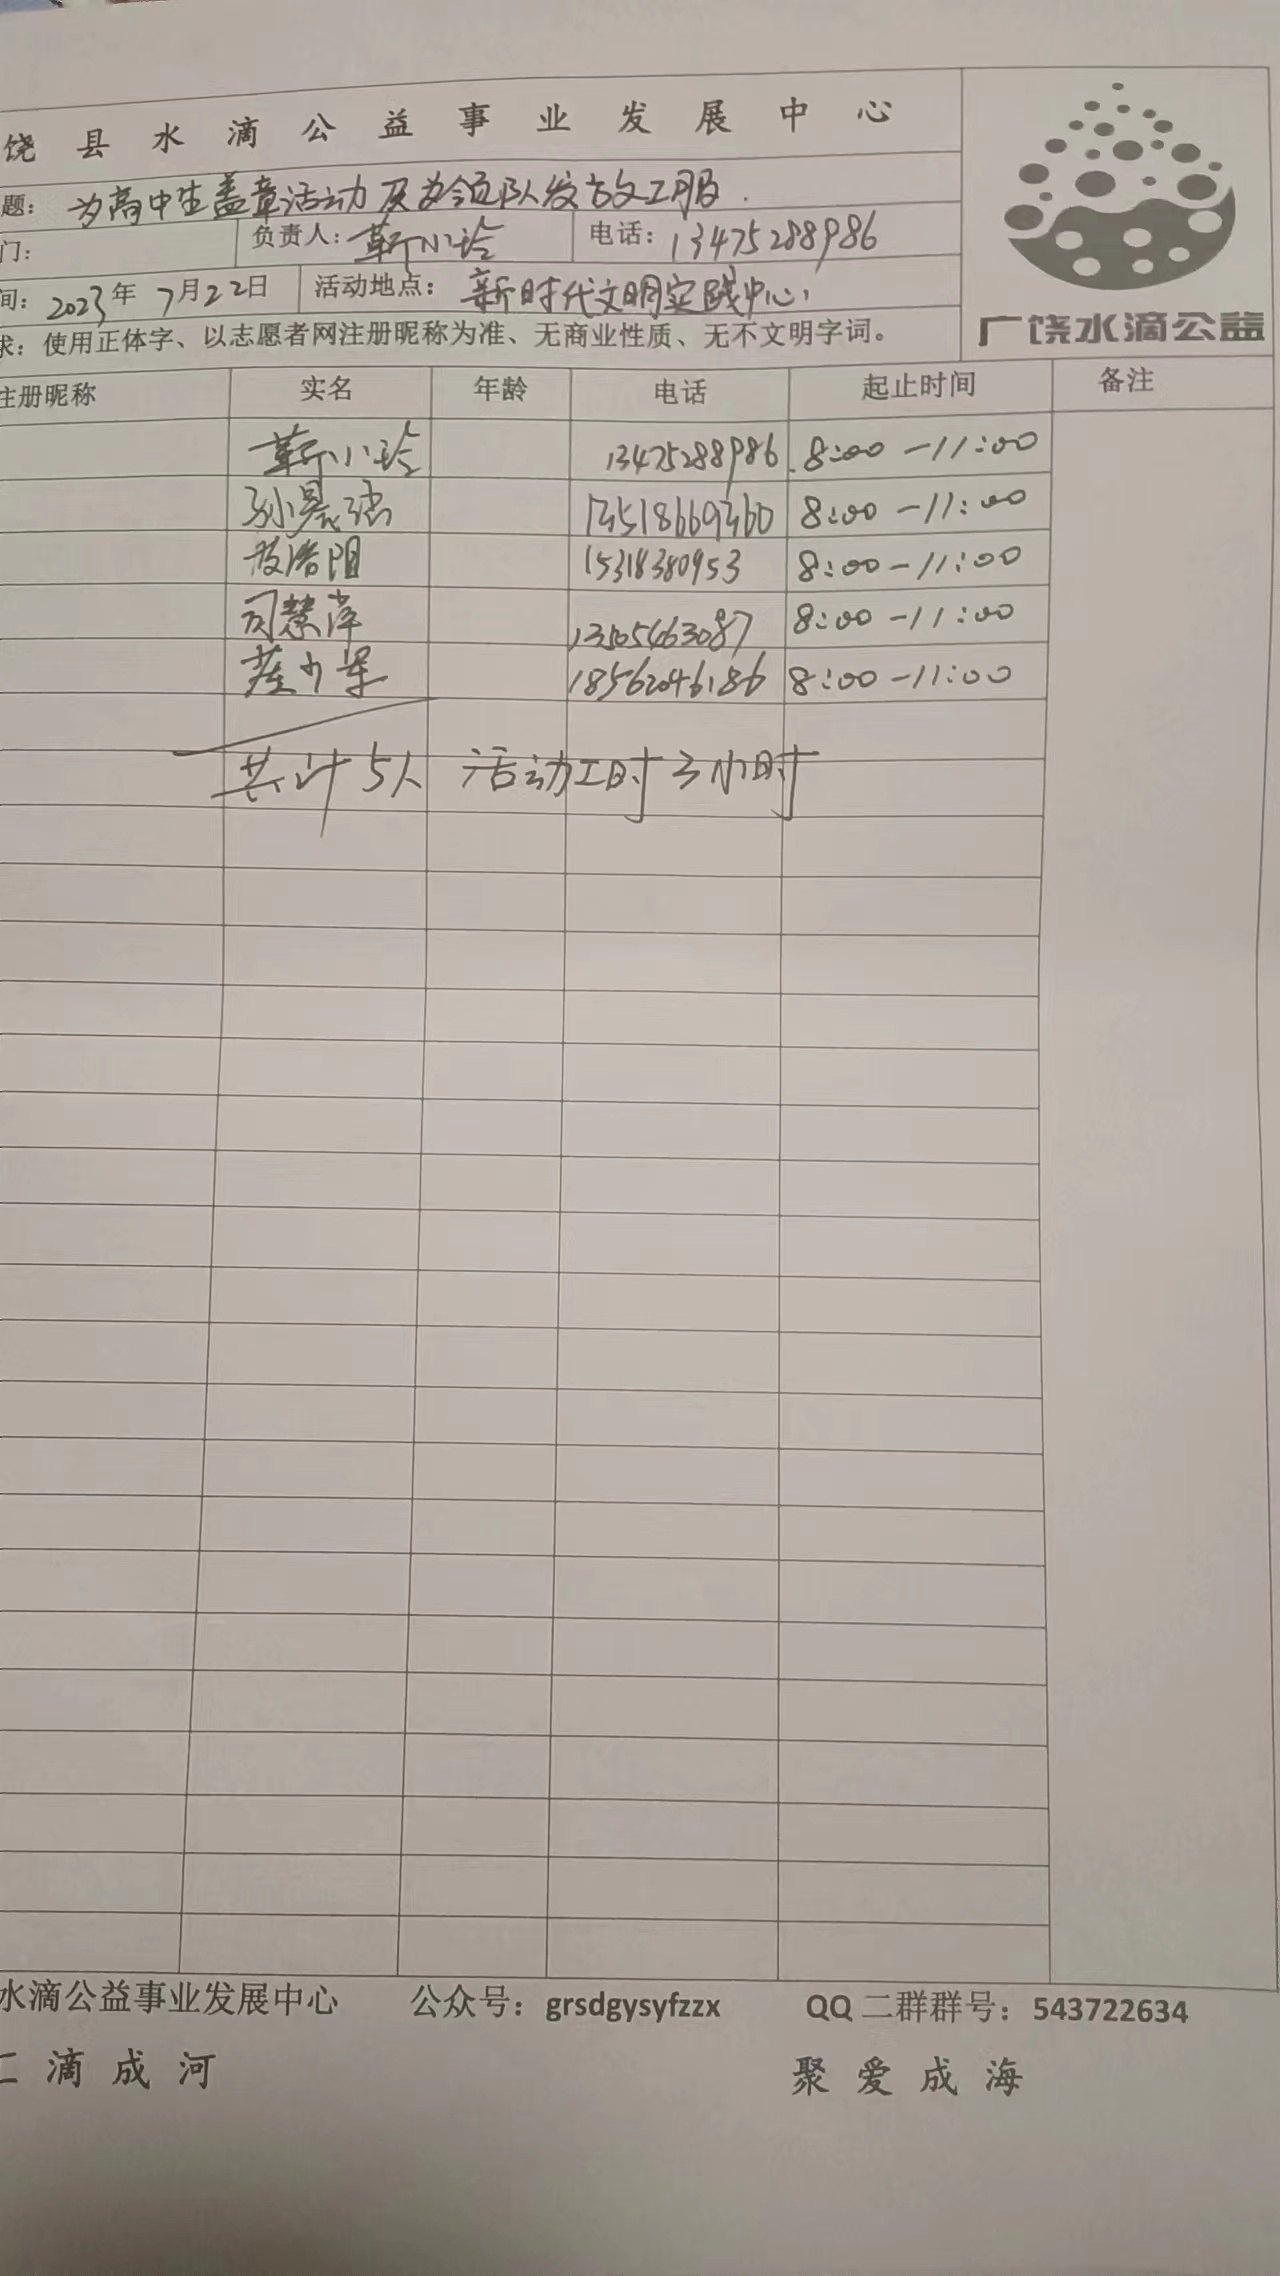 饶县水滴公益事业发展中心
题：为高中生盖章活动及为领队发放工服.
门： 负责人：靳小玲 电话：13475288986
间：2023年7月22日 活动地点：新时代文明实践中心
求：使用正体字、以志愿者网注册昵称为准、无商业性质、无不文明字词。
广饶水滴公益
注册昵称 实名 年龄 电话 起止时间 备注
靳小玲 13475288986 8:00-11:00
孙 8:00-11:00
阳 15318380953 8:00-11:00
司慧萍 13505463087 8:00-11:00
18562046186 8:00-11:00
共计5人 活动工时3小时
水滴公益事业发展中心 公众号：grsdgysyfzzx QQ二群群号：543722634
汇滴成河 聚爱成海